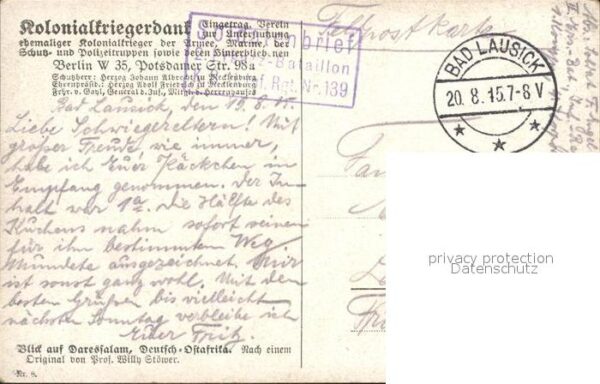 Kolonialkriegerdank Eingetrag. Verein
zur Unterstützung
ehemaliger Kolonialkrieger der Armee, Marine, der
Schutz- und Polizeitruppen sowie deren Hinterblieb.nen
Berlin W 35, Potsdamer Str. 98a
Schutzherr: Herzog Johann Albrecht zu Mecklenburg
Ehrenpräsid.: Herzog Adolf Friedrich zu Mecklenburg
Frhr. v. Gayl, General d. Inf., Mitgl. d. Herrenhauses
Soldatenbrief
Bataillon
Rgt. Nr. 139
Feldpostkarte
BAD LAUSICK
20.8.15.7-8V
Bad Lausick, den 19.8.15.
Liebe Schwiegereltern! Mit
großer Freude wie immer,
habe ich Euer Päckchen in
Empfang genommen. Der In-
halt war 1a. Die Hälfte des
Kuchens nahm sofort seinen
für ihn bestimmten Weg.
Mundete ausgezeichnet. Mir
ist sonst ganz wohl. Mit den
besten Grüßen bis vielleicht
nächsten Sonntag verbleibe ich
Euer Fritz.
Blick auf Daressalam, Deutsch-Ostafrika. Nach einem
Original von Prof. Willy Stöwer.
Nr. 8.
privacy protection
Datenschutz